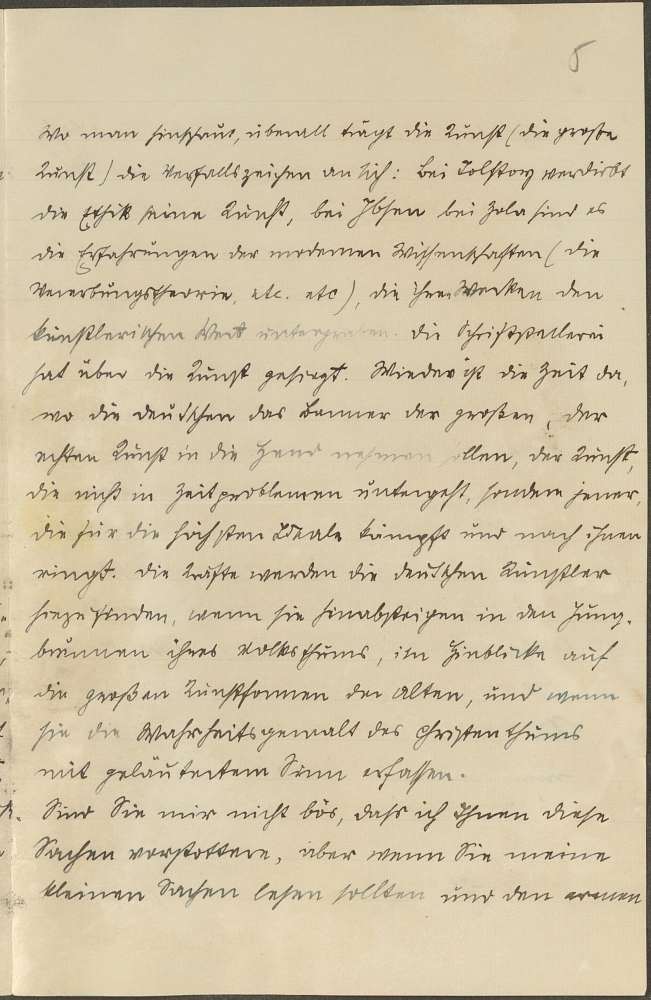 5
Wo man hinschaut, überall trägt die Kunst (die große
Kunst) die Verfallszeichen an sich: bei Tolstoy verdirbt
die Ethik seine Kunst, bei Ibsen bei Zola sind es
die Erfahrungen der modernen Wissenschaften (die
Vererbungstheorie, etc. etc), die ihren Werken den
künstlerischen Wert untergraben. Die Schriftstellerei
hat über die Kunst gesiegt. Wieder ist die Zeit da,
wo die Deutschen das Banner der großen, der
echten Kunst in die Hand nehmen sollen, der Kunst,
die nicht in Zeitproblemen untergeht, sondern jener,
die für die höchsten Ideale kämpft und nach ihnen
ringt. Die Kräfte werden die deutschen Künstler
hiezu finden, wenn sie hinabsteigen in den Jung-
brunnen ihres Volksthums, im Hinblicke auf
die großen Kunstformen der Alten, und wenn
sie die Wahrheitsgewalt des Christenthums
mit geläutertem Sinn erfassen.
Sind Sie mir nicht bös, dass ich Ihnen diese
Sachen vorstottere, aber wenn Sie meine
kleinen Sachen lesen sollten und den armen